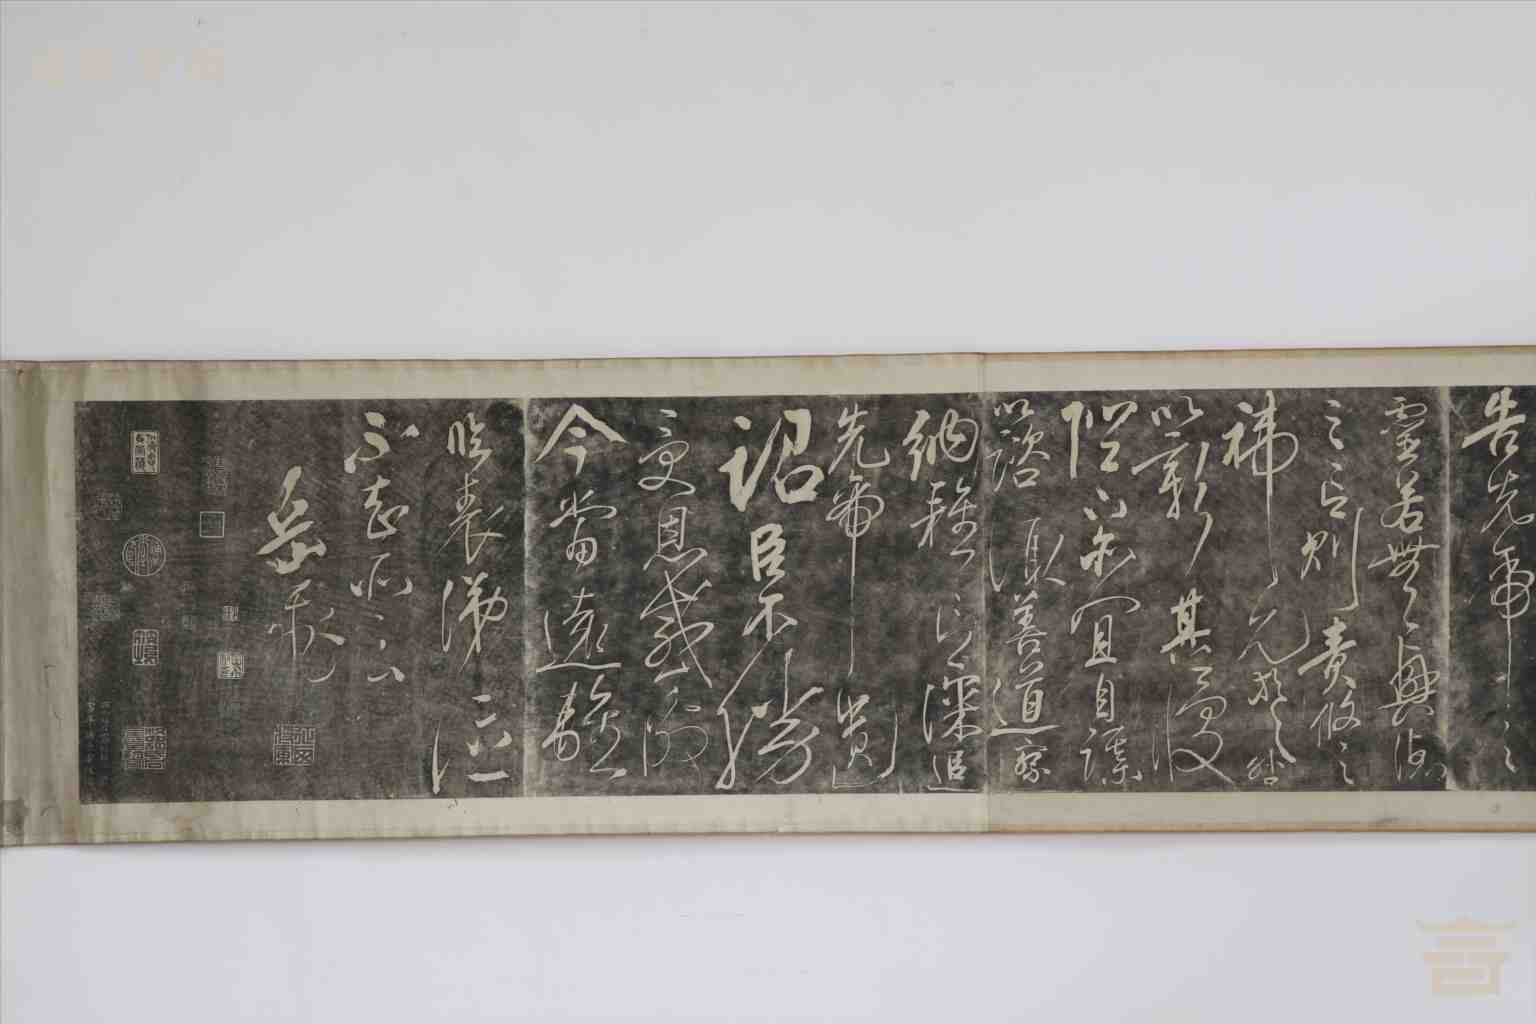 告先帝之
靈若無興德
之言則責攸之
禕允等之咎
以彰其慢
陛下亦宜自謀
以諮諏善道察
納雅言深追
先帝遺
詔臣不勝
受恩感激
今當遠離
臨表涕泣
不知所云
岳飛